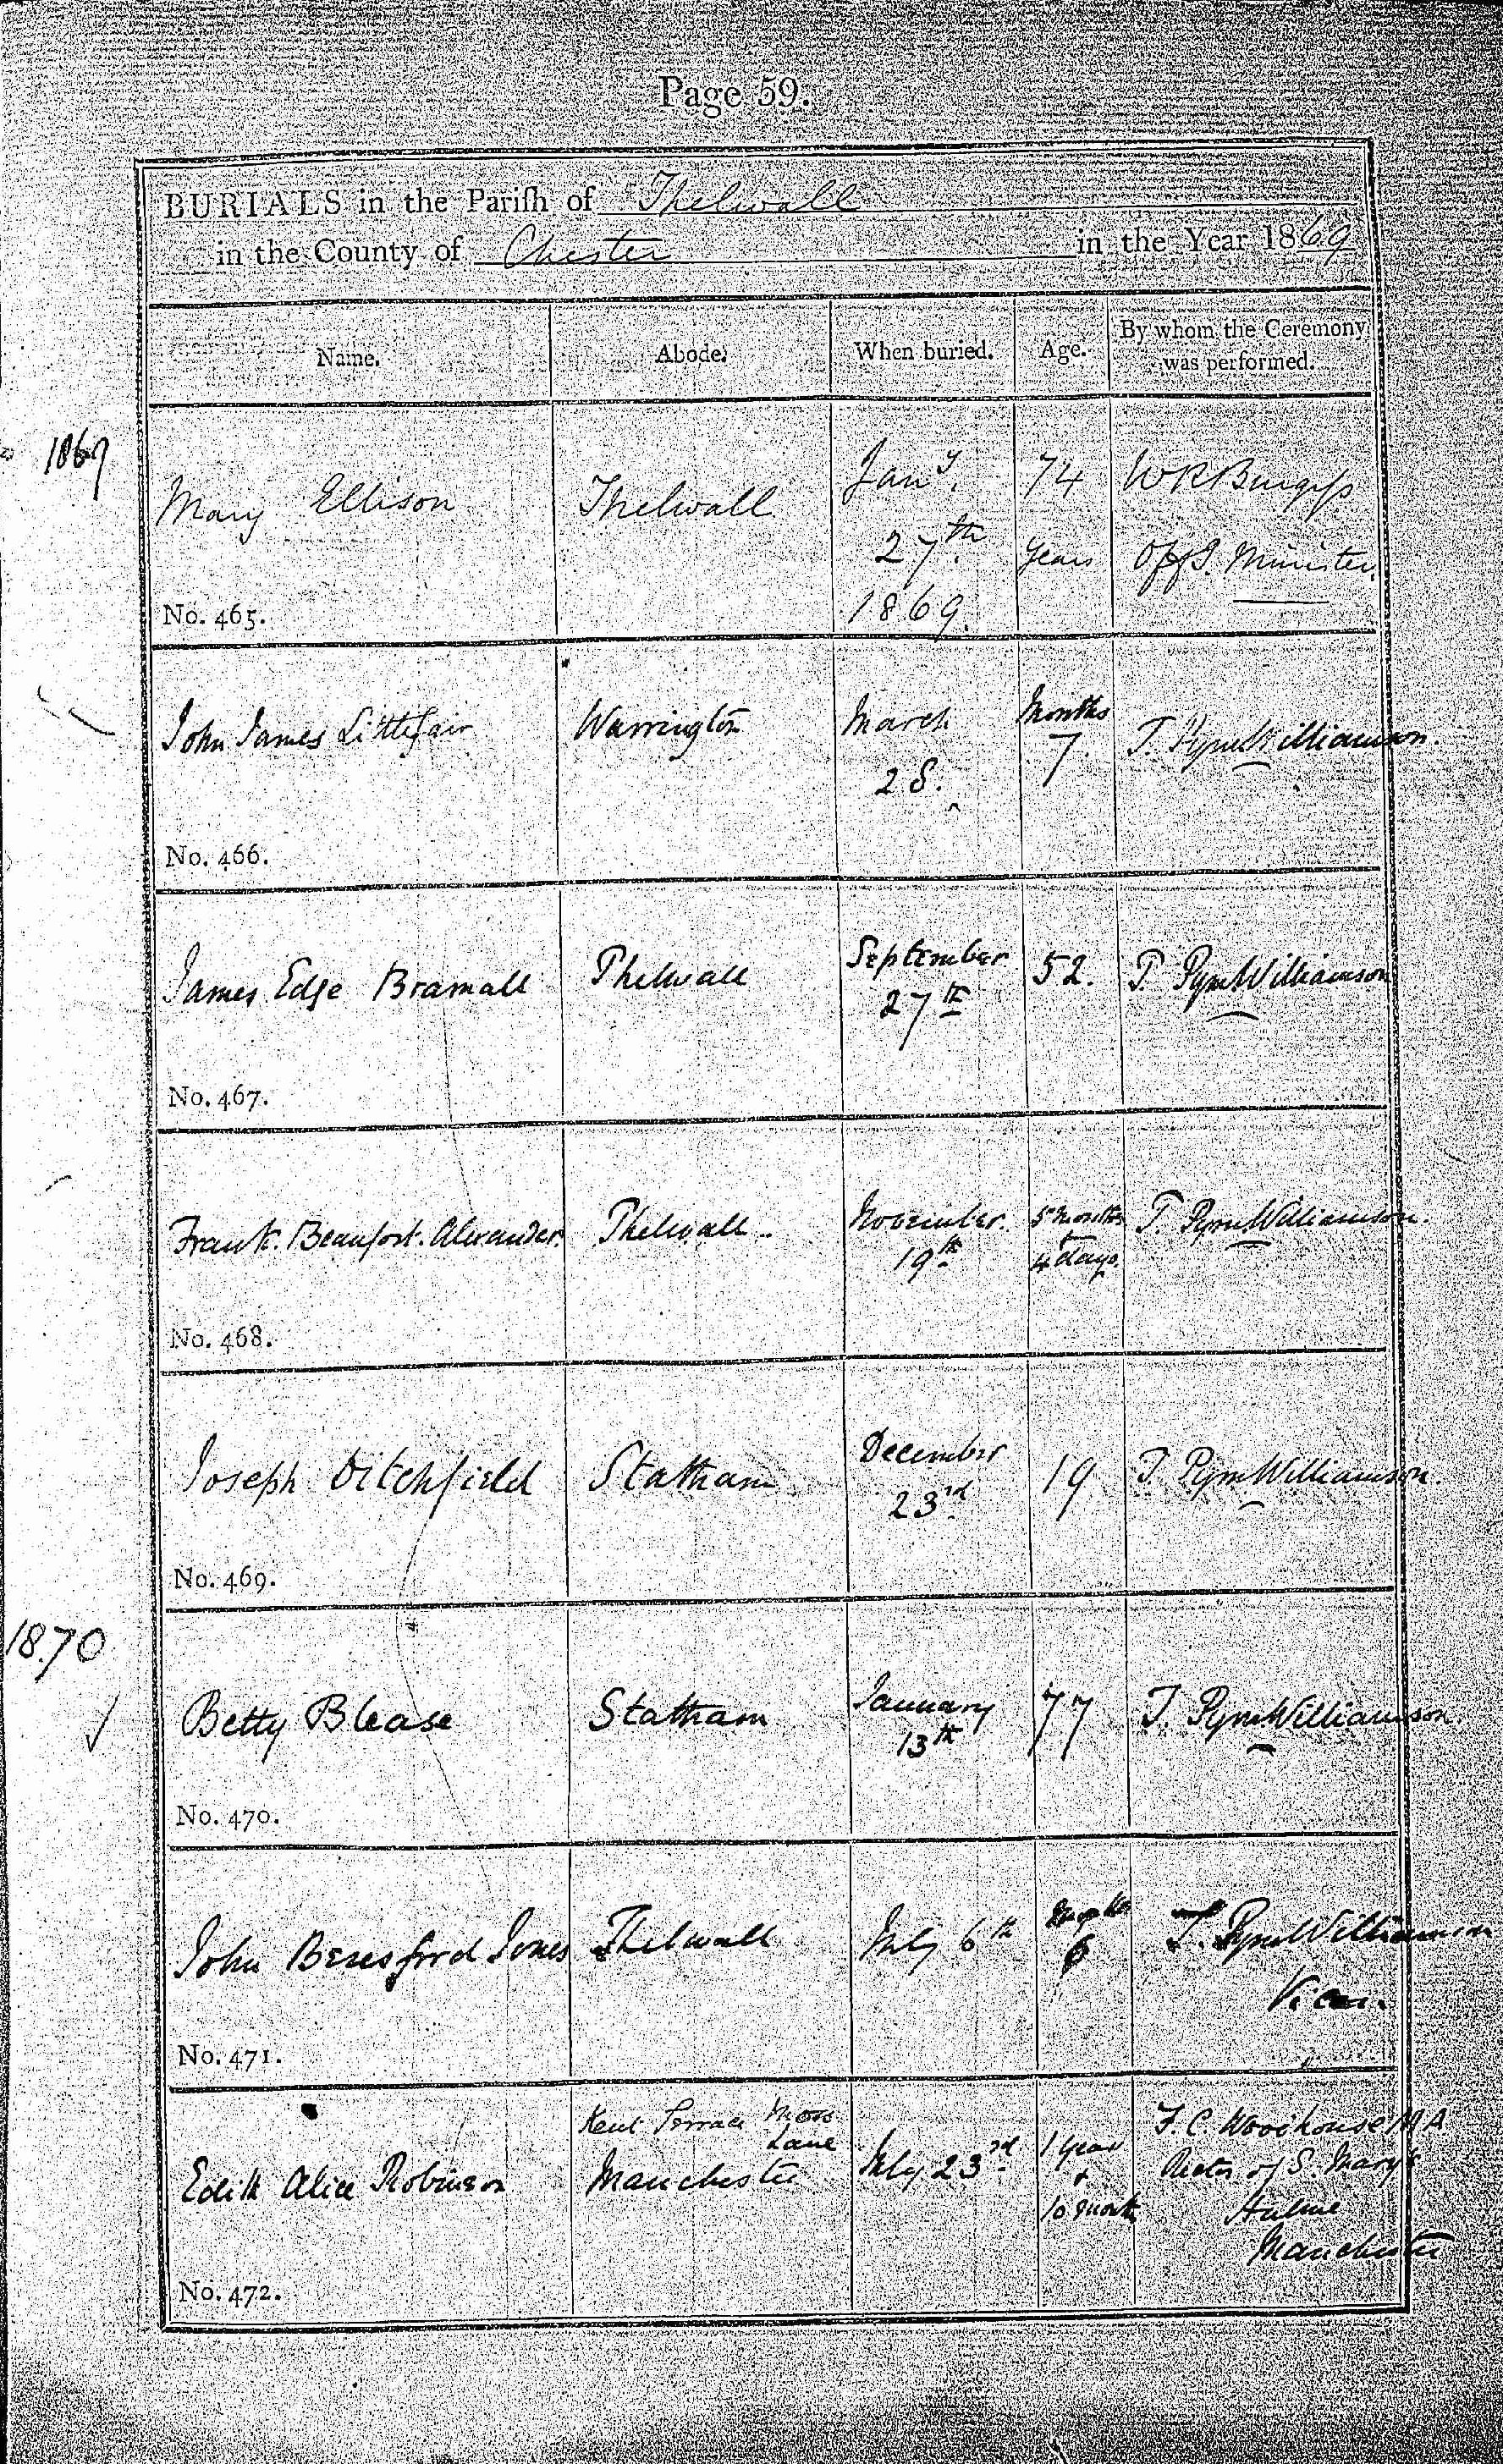 Page 59.
BURIALS in the Parish of Thelwall
in the County of Chester in the Year 1869
Name. Abode. When buried. Age. By whom the Ceremony was performed.
1869
Mary Ellison Thelwall Jany. 27th. 1869. 74 years W R Burgess Offg. Minister.
No. 465.
John James Littlefair Warrington March 28. Months 7 T. Pyne Williamson.
No. 466.
James Edge Bramall Thelwall September 27th 52. T. Pyne Williamson
No. 467.
Frank. Beaufort. Alexander. Thelwall November 19th 5 months + 4 days. T. Pyne Williamson.
No. 468.
Joseph Ditchfield Statham December 23rd 19 T. Pyne Williamson.
No. 469.
1870
Betty Blease Statham January 13th 77 T. Pyne Williamson.
No. 470.
John Beresford Jones Thelwall July 6th Months 6 T. Pyne Williamson Vicar.
No. 471.
Edith Alice Robinson Kent Terrace Moss Lane Manchester July 23rd 1 year + 10 month F. C. Woodhouse M A Rector of S. Mary's Hulme Manchester
No. 472.